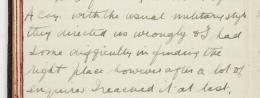 A Coy. with the usual military style
they directed us wrongly & I had
some difficulty in finding the
right place however after a lot of
inquiries I reached it at last.